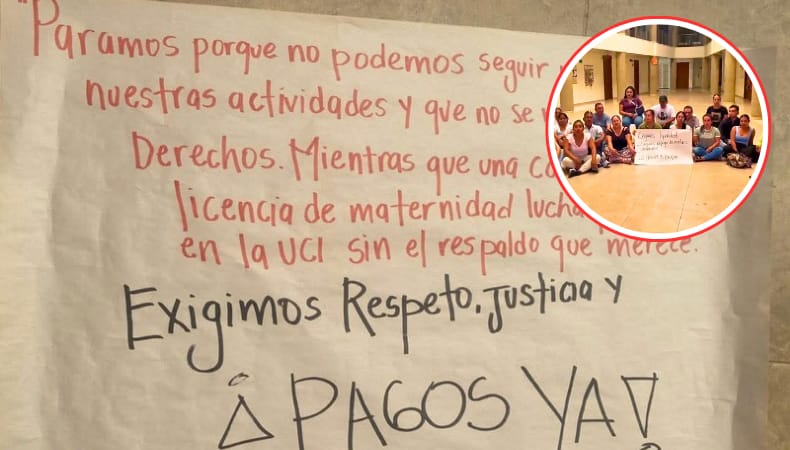 "Paramos porque no podemos seguir
nuestras actividades y que no se
Derechos. Mientras que una
licencia de maternidad
en la UCI sin el respaldo que merece.
Exigimos Respeto, Justicia y
¡PAGOS YA!